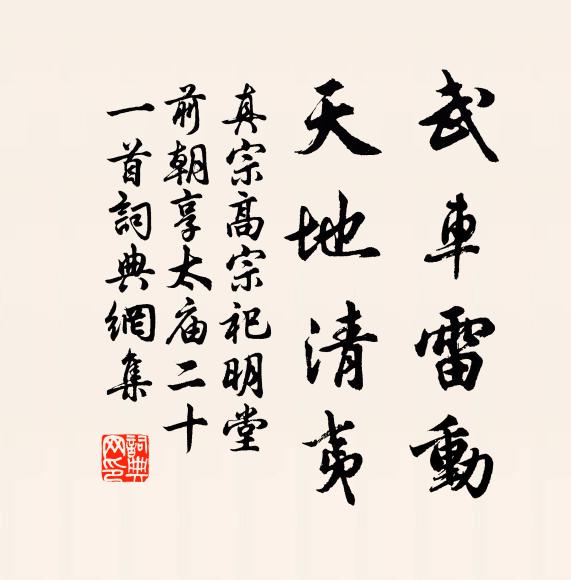 武車雷動
天地清夷
真宗高宗祀明堂
前朝享太庙二十
一首詞典網集
詞典
网印